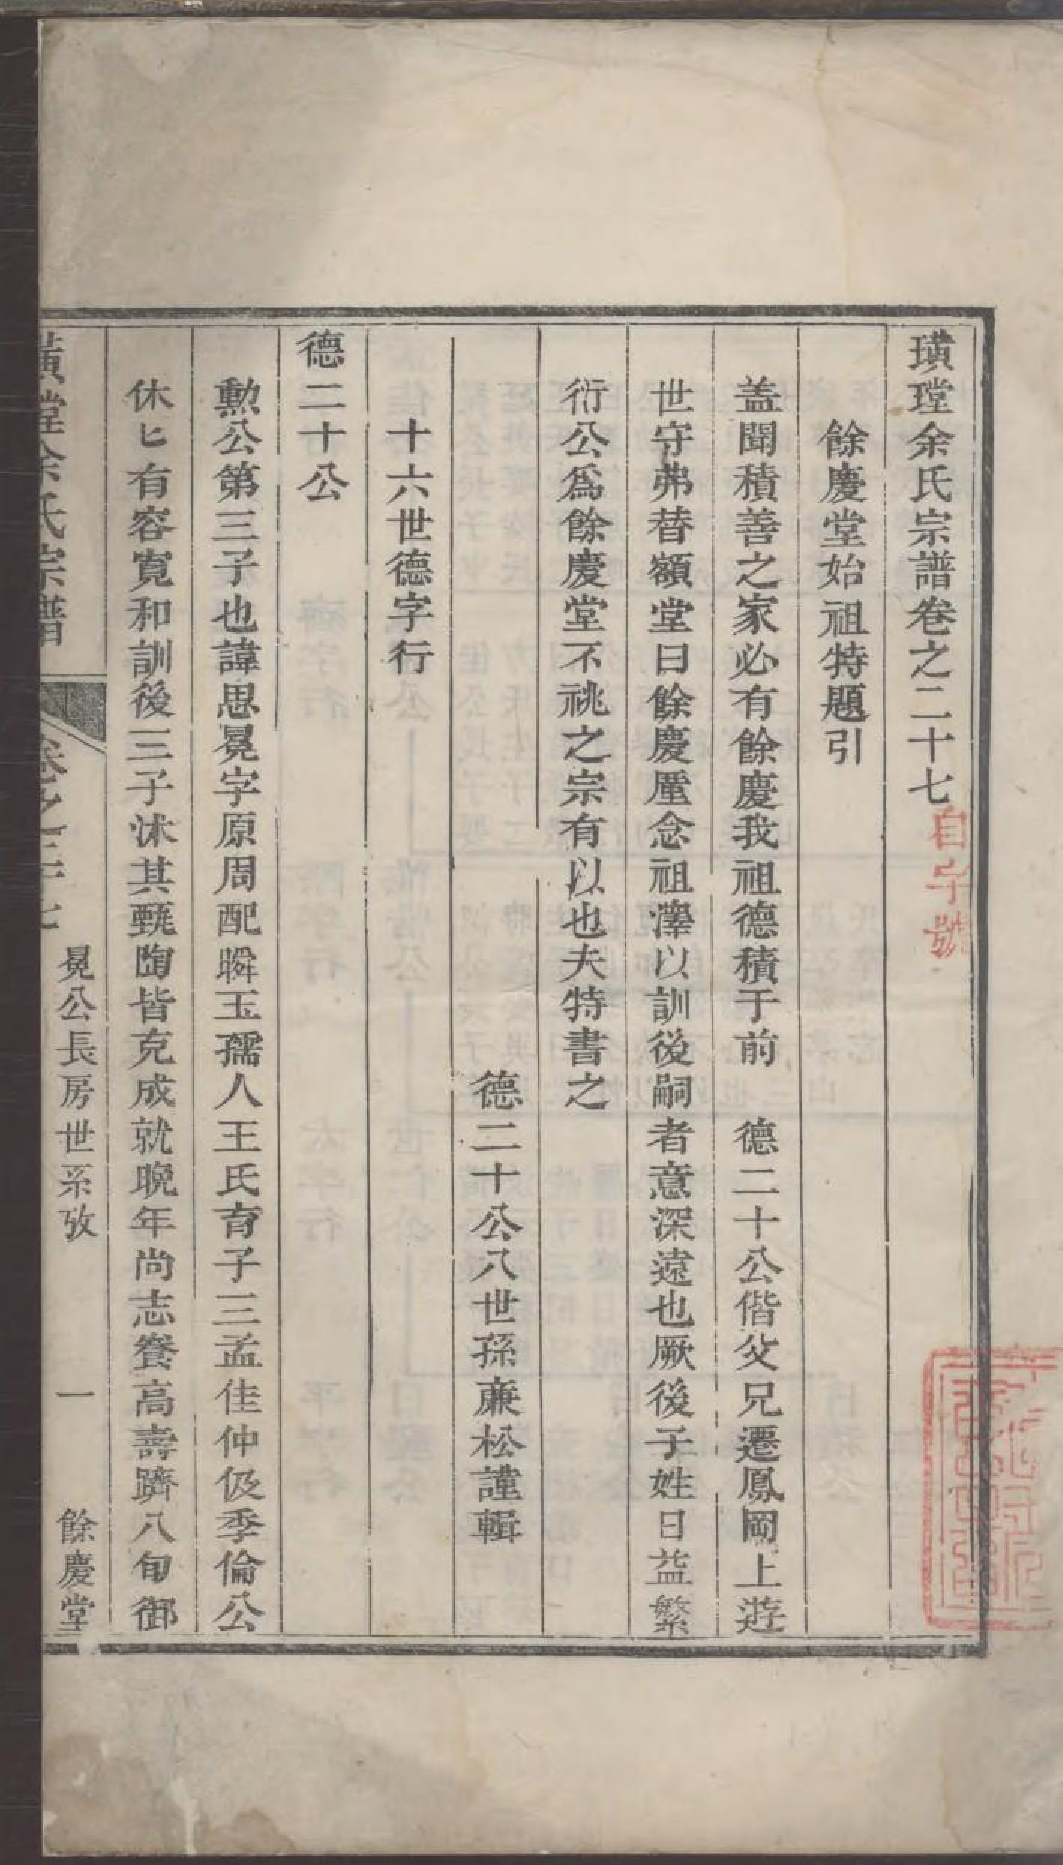 璜瑆余氏宗譜卷之二十七
自字號
餘慶堂始祖特題引
蓋聞積善之家必有餘慶我祖德積于前　德二十公偕父兄遷鳳岡上遊
世守弗替額堂曰餘慶厪念祖澤以訓後嗣者意深遠也厥後子姓日益繁
衍公爲餘慶堂不祧之宗有以也夫特書之
德二十公八世孫蔴松謹輯
十六世德字行
德二十公
勲公第三子也諱思冕字原周配瞬玉孺人王氏育子三孟佳仲伋季倫公
休匕有容寬和訓後三子沐其甄陶皆克成就晩年尚志養高壽躋八旬御
璜瑆余氏宗譜　卷之二十七　冕公長房世系攷　一　餘慶堂